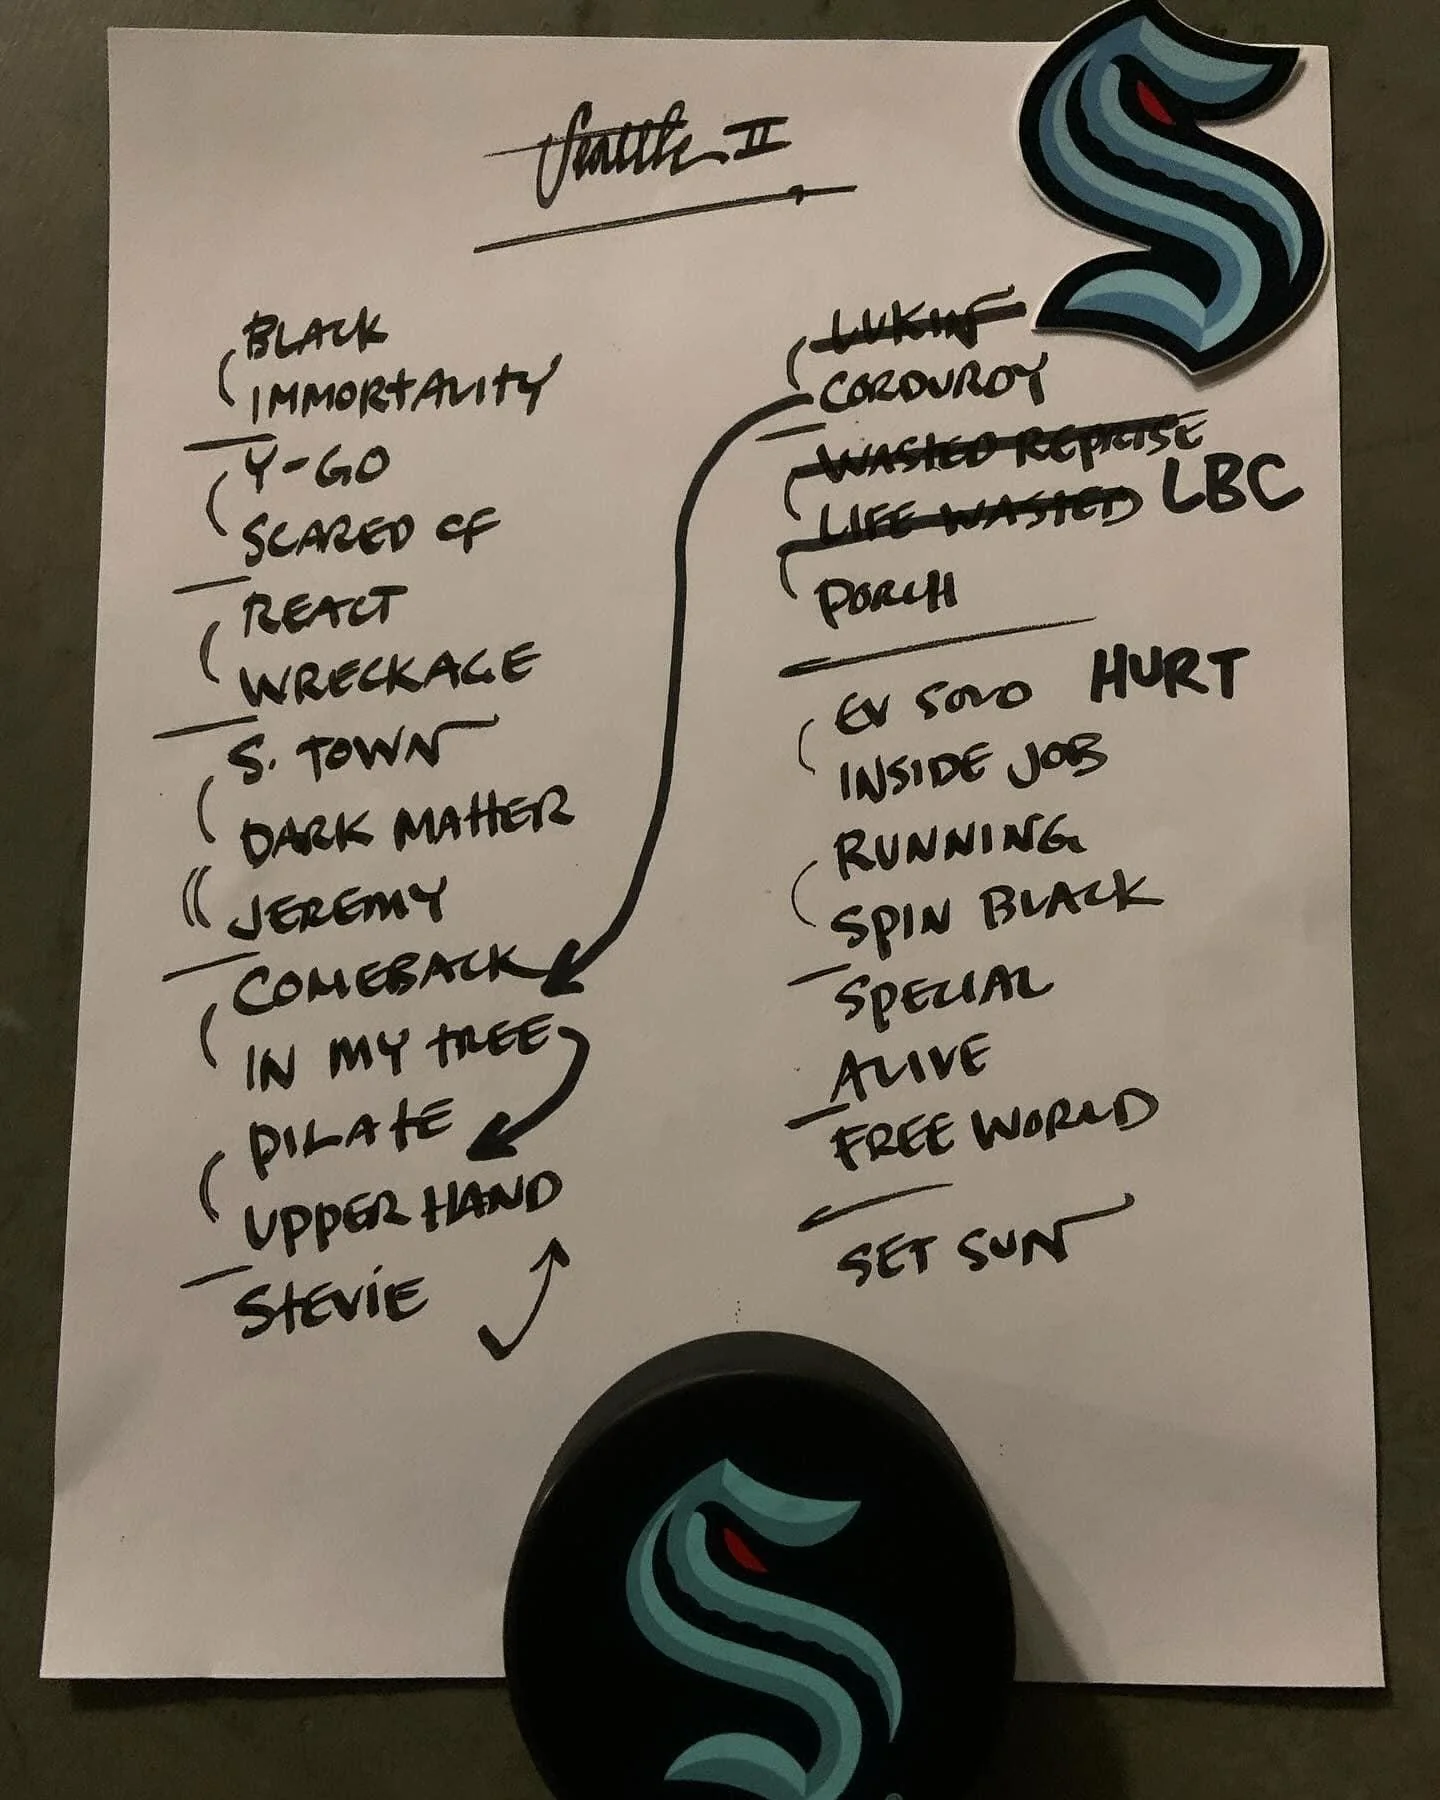 Seattle II
BLACK
IMMORTALITY
Y-GO
SCARED OF
REACT
WRECKAGE
S. TOWN
DARK MATTER
JEREMY
COMEBACK
IN MY TREE
PILATE
UPPER HAND
STEVIE
LUKIN
CORDUROY
WASTED REPRISE
LIFE WASTED LBC
PORCH
EV SOLO HURT
INSIDE JOB
RUNNING
SPIN BLACK
SPECIAL
ALIVE
FREE WORLD
SET SUN